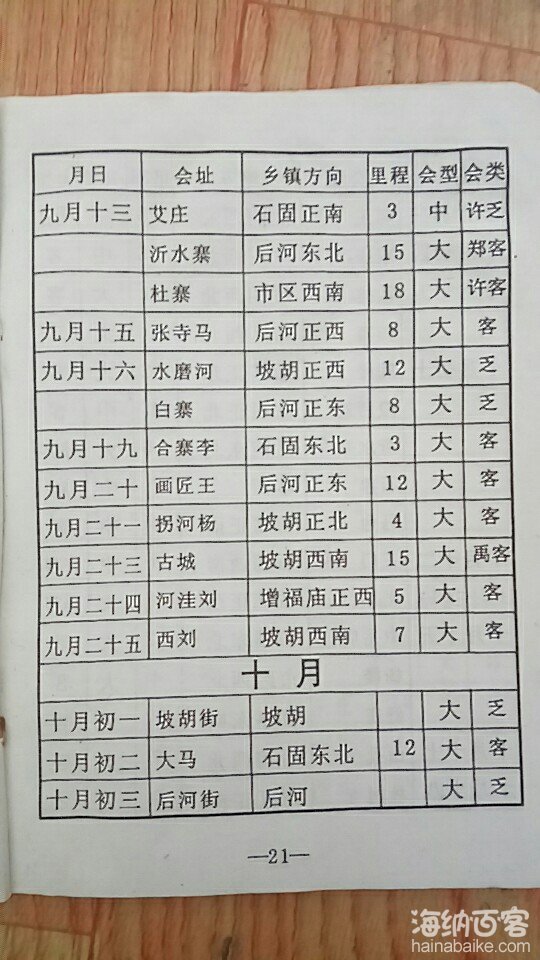 月日 会址 乡镇方向 里程 会型 会类
九月十三 艾庄 石固正南 3 中 许乏
沂水寨 后河东北 15 大 郑客
杜寨 市区西南 18 大 许客
九月十五 张寺马 后河正西 8 大 客
九月十六 水磨河 坡胡正西 12 大 乏
白寨 后河正东 8 大 乏
九月十九 合寨李 石固东北 3 大 客
九月二十 画匠王 后河正东 12 大 客
九月二十一 拐河杨 坡胡正北 4 大 客
九月二十三 古城 坡胡西南 15 大 禹客
九月二十四 河洼刘 增福庙正西 5 大 客
九月二十五 西刘 坡胡西南 7 大 客
十月
十月初一 坡胡街 坡胡 大 乏
十月初二 大马 石固东北 12 大 客
十月初三 后河街 后河 大 乏
—21—
海纳百客
hainabaike.com